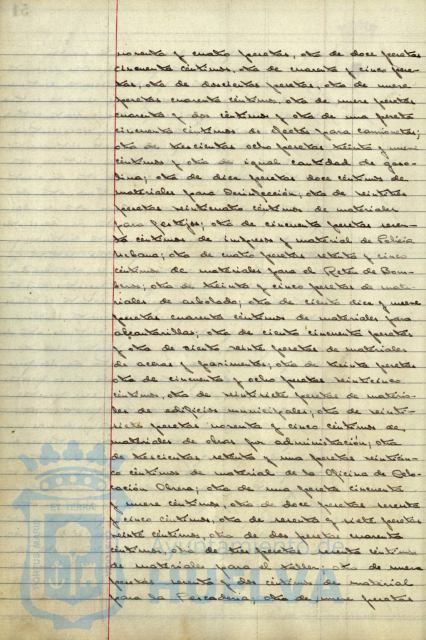 noventa y cuatro pesetas, otra de doce pesetas
cincuenta céntimos, otra de cuarenta y cinco pese-
tas, otra de doscientas pesetas, otra de nueve
pesetas cuarenta céntimos, otra de nueve pesetas
cuarenta y dos céntimos y otra de una peseta
cincuenta céntimos de efectos para camiones;
otra de trescientas ocho pesetas treinta y nueve
céntimos y otra de igual cantidad de gaso-
lina; otra de doce pesetas doce céntimos de
materiales para Desinfección; otra de veintitres
pesetas veinticuatro céntimos de materiales
para Festejos; otra de cincuenta pesetas sesen-
ta céntimos de impresos y material de Policía
Urbana; otra de cuatro pesetas setenta y cinco
céntimos de materiales para el Retén de Bom-
beros; otra de treinta y cinco pesetas de mate-
riales de arbolado; otra de ciento diez y nueve
pesetas cuarenta céntimos de materiales para
alcantarillas; otra de ciento cincuenta pesetas
y otra de ciento veinte pesetas de materiales
de aceras y pavimentos; otra de treinta pesetas
otra de cincuenta y ocho pesetas veinticinco
céntimos, otra de veintisiete pesetas de materia-
les de edificios municipales; otra de veinti-
siete pesetas noventa y cinco céntimos de
materiales de obras por administración; otra
de trescientas setenta y una pesetas veinticin-
co céntimos de material de la Oficina de Colo-
cación Obrera; otra de una peseta cincuenta
y nueve céntimos, otra de doce pesetas sesenta
y cinco céntimos, otra de sesenta y siete pesetas
veinte céntimos, otra de dos pesetas cuarenta
céntimos, otra de tres pesetas céntimos
de materiales para el taller; otra de nueve
pesetas sesenta y dos céntimos de material
para la Pescadería; otra de nueve pesetas
Ayuntamiento de
HUELVA